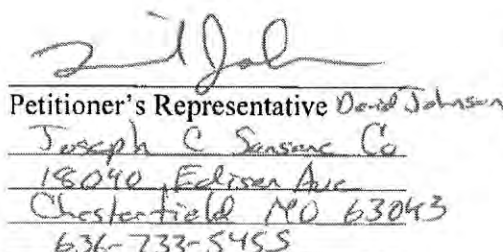 Petitioner's Representative David Johnson
Joseph C Sansone Co
18040 Edison Ave
Chesterfield MO 63043
636-733-5455